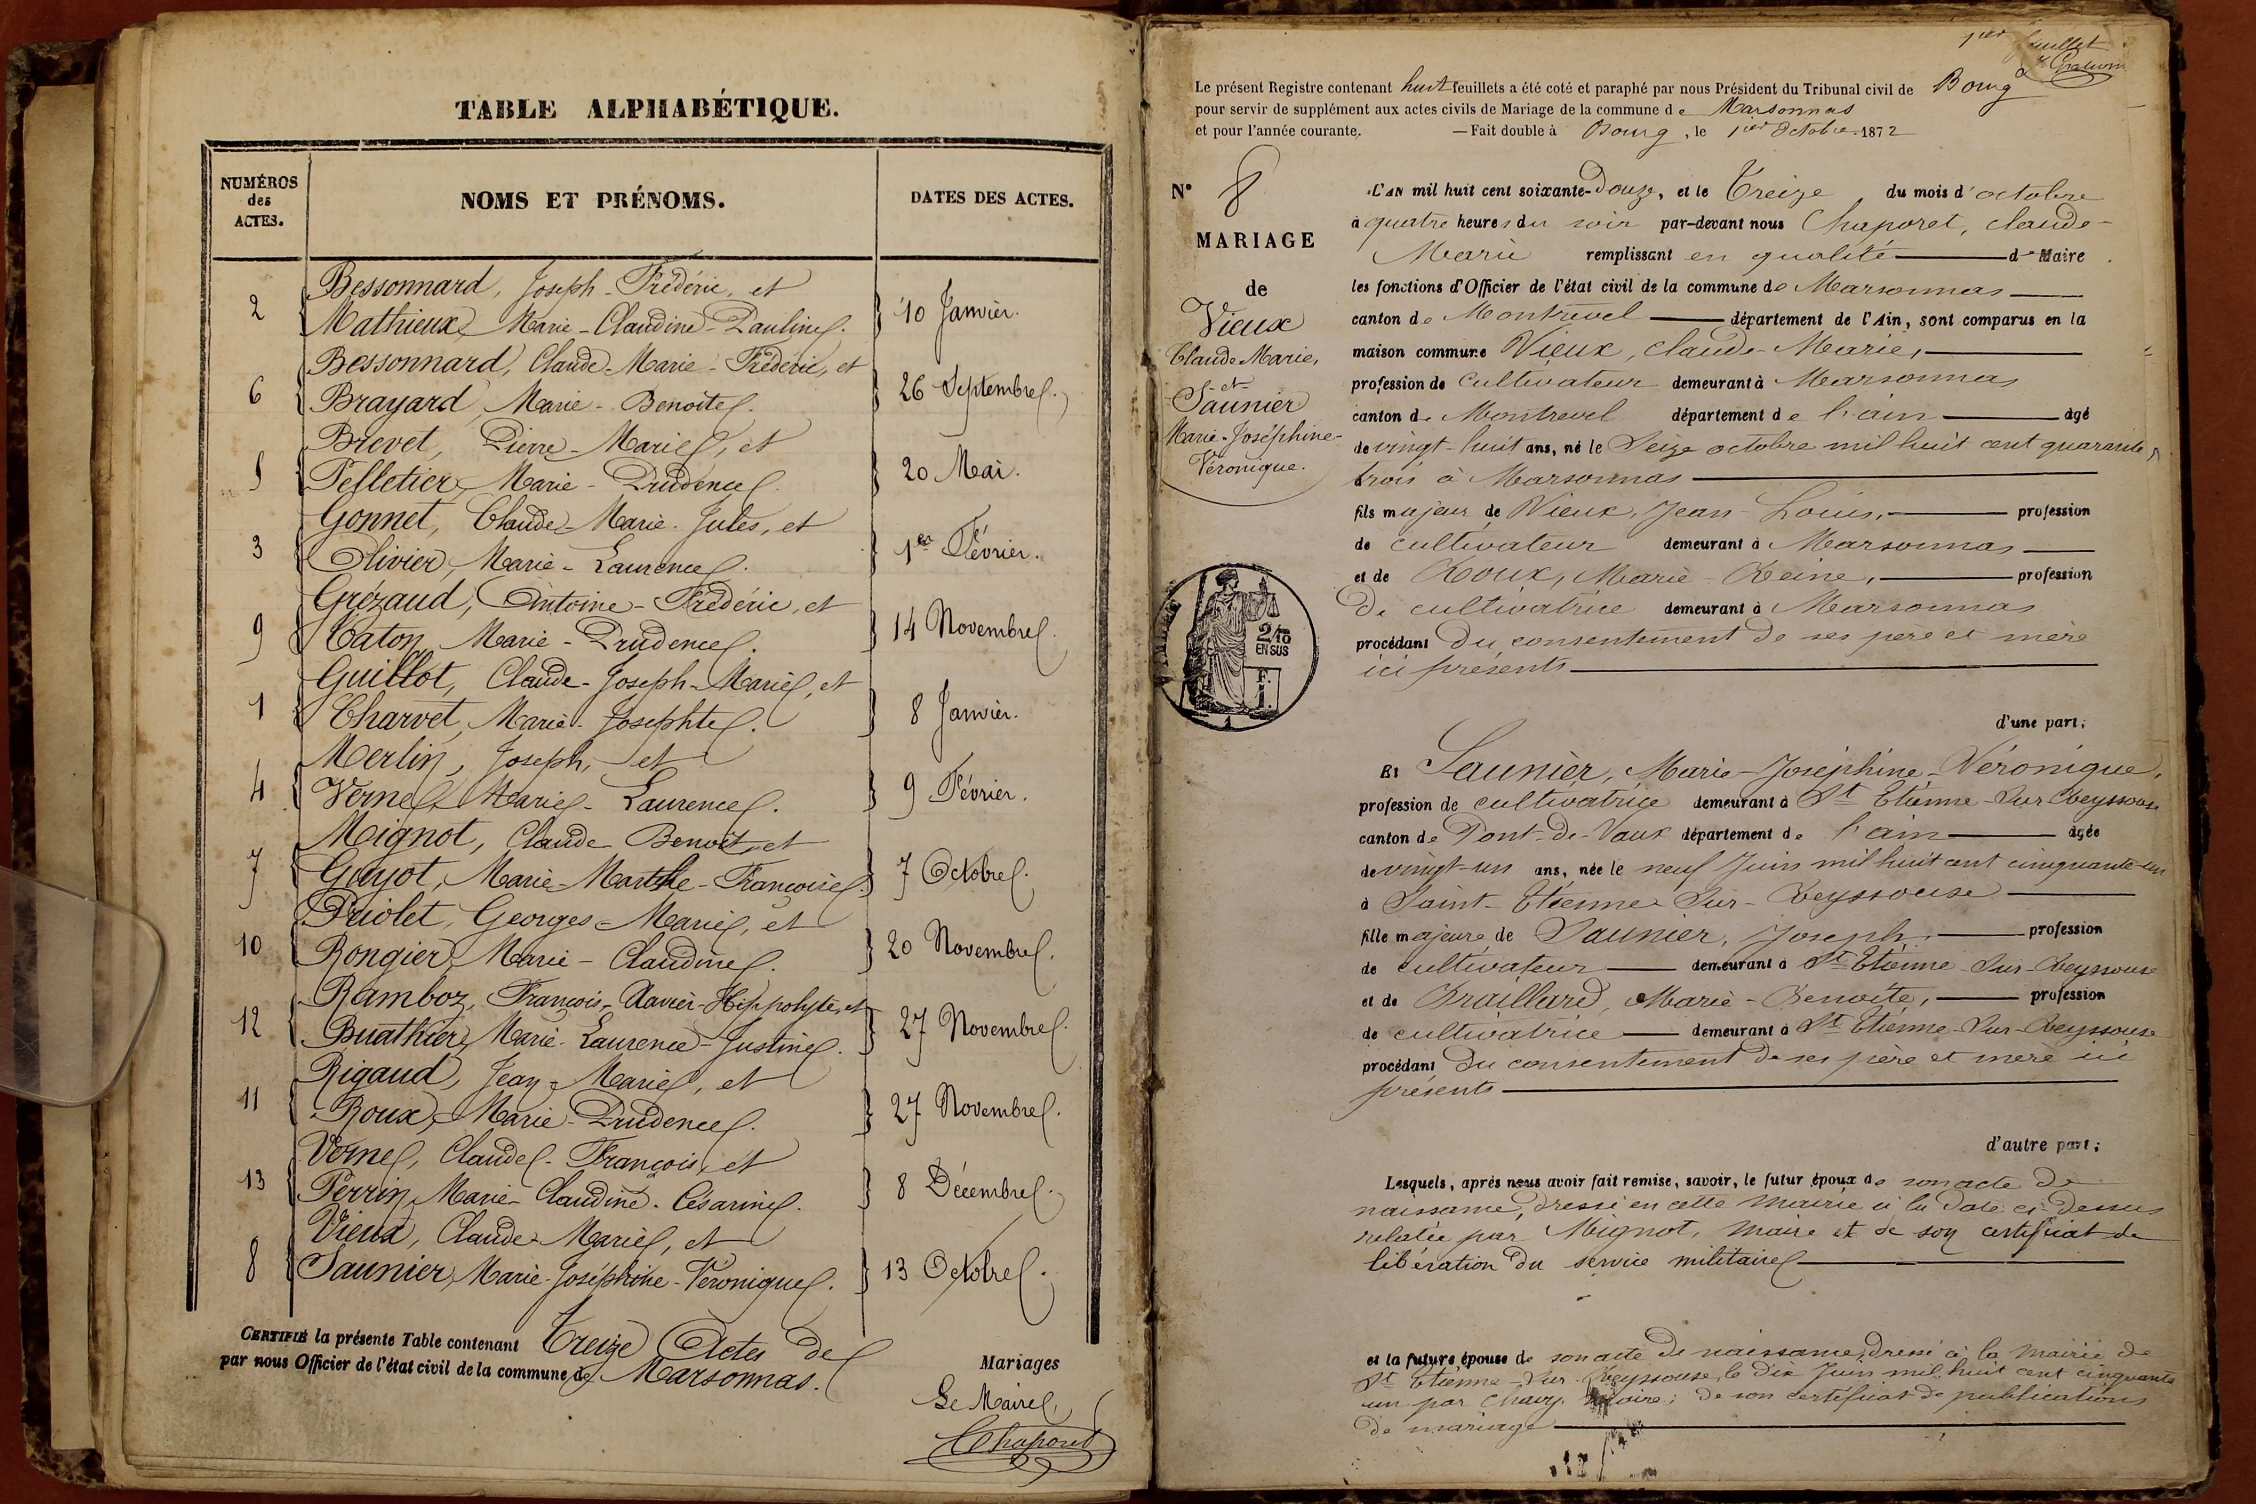 TABLE ALPHABÉTIQUE.
NUMÉROS
des
ACTES.
NOMS ET PRÉNOMS.
DATES DES ACTES.
Bessonnard, Joseph-Frédéric, et
2 Mathieux Marie-Claudine-Pauline. 10 Janvier.
Bessonnard, Claude-Marie-Frédéric, et
6 Brayard Marie-Benoite. 26 Septembre.
Brevet, Pierre-Marie, et
5 Pelletier Marie-Prudence. 20 Mai.
Gonnet, Claude-Marie-Jules, et
3 Olivier, Marie-Laurence. 1er Février.
Grézaud, Antoine-Frédéric, et
9 Caton, Marie-Prudence. 14 Novembre.
Guillot, Claude-Joseph-Marie, et
1 Charvet, Marie-Josephte. 8 Janvier.
Merlin, Joseph, et
4 Verne, Marie-Laurence. 9 Février.
Mignot, Claude Benoit, et
7 Guyot, Marie-Marthe-Françoise. 7 Octobre.
Priolet, Georges-Marie, et
10 Rongier, Marie-Claudine. 20 Novembre.
Ramboz, François-Xavier-Hippolyte, et
12 Buathier, Marie-Laurence-Justine. 27 Novembre.
Rigaud, Jean-Marie, et
11 Roux, Marie-Prudence. 27 Novembre.
Verne, Claude-François, et
13 Perrin, Marie-Claudine-Césarine. 8 Décembre.
Vieux, Claude Marie, et
8 Saunier, Marie-Joséphine-Véronique. 13 Octobre.
CERTIFIÉ la présente Table contenant Treize Actes de Mariages
par nous Officier de l'état civil de la commune de Marsonnas.
Le Maire,
Chaporet
1er feuillet
Le présent Registre contenant huit feuillets a été coté et paraphé par nous Président du Tribunal civil de Bourg
pour servir de supplément aux actes civils de Mariage de la commune de Marsonnas
et pour l'année courante. — Fait double à Bourg, le 1er Octobre 1872
N° 8
MARIAGE
de
Vieux
Claude Marie,
et
Saunier
Marie-Joséphine-
Véronique.
2/10
EN SUS
F.
1.
L'AN mil huit cent soixante-Douze, et le Treize du mois d'octobre
à quatre heures du soir par-devant nous Chaporet, claude-
Marie remplissant en qualité de Maire
les fonctions d'Officier de l'état civil de la commune de Marsonnas
canton de Montrevel département de l'Ain, sont comparus en la
maison commune Vieux, claude-Marie,
profession de cultivateur demeurant à Marsonnas
canton de Montrevel département de l'ain agé
de vingt-huit ans, né le Seize octobre mil huit cent quarante
trois à Marsonnas
fils majeur de Vieux, Jean-Louis, profession
de cultivateur demeurant à Marsonnas
et de Roux, Marie-Reine, profession
De cultivatrice demeurant à Marsonnas
procédant Du consentement de ses père et mère
ici présents
d'une part;
Et Saunier, Marie-Joséphine-Véronique,
profession de cultivatrice demeurant à St Etienne-Sur Reyssouse
canton de Pont-de-Vaux département de l'ain agée
de vingt-un ans, née le neuf Juin mil huit cent cinquante-un
à Saint-Etienne Sur-Reyssouse
fille majeure de Saunier, Joseph, profession
de cultivateur demeurant à St Etienne Sur-Reyssouse
et de Braillard, Marie-Benoite, profession
de cultivatrice demeurant à St Etienne-Sur-Reyssouse
procédant Du consentement de ses père et mère ici
présents
d'autre part;
Lesquels, après nous avoir fait remise, savoir, le futur époux de son acte de
naissance, dressé en cette mairie à la date ci-dessus
relatée par Mignot, Maire et de son certificat de
libération du service militaire
et la future épouse de son acte de naissance, dressé à la Mairie de
St Etienne-Sur-Reyssouse, le Dix Juin mil huit cent cinquante
un par Chavy, Maire; de son certificat de publications
De mariage